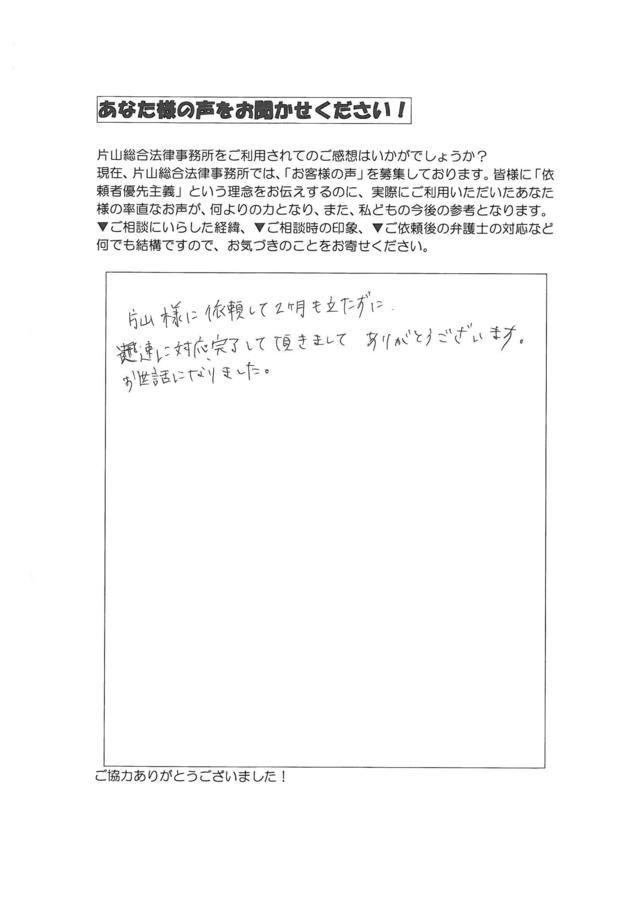 あなた様の声をお聞かせください！
片山総合法律事務所をご利用されてのご感想はいかがでしょうか？
現在、片山総合法律事務所では、「お客様の声」を募集しております。皆様に「依
頼者優先主義」という理念をお伝えするのに、実際にご利用いただいたあなた
様の率直なお声が、何よりの力となり、また、私どもの今後の参考となります。
▼ご相談にいらした経緯、▼ご相談時の印象、▼ご依頼後の弁護士の対応など
何でも結構ですので、お気づきのことをお寄せください。
片山様に依頼して2ヶ月も立たずに、
超速に対応完了して頂きまして ありがとうございます。
お世話になりました。
ご協力ありがとうございました！